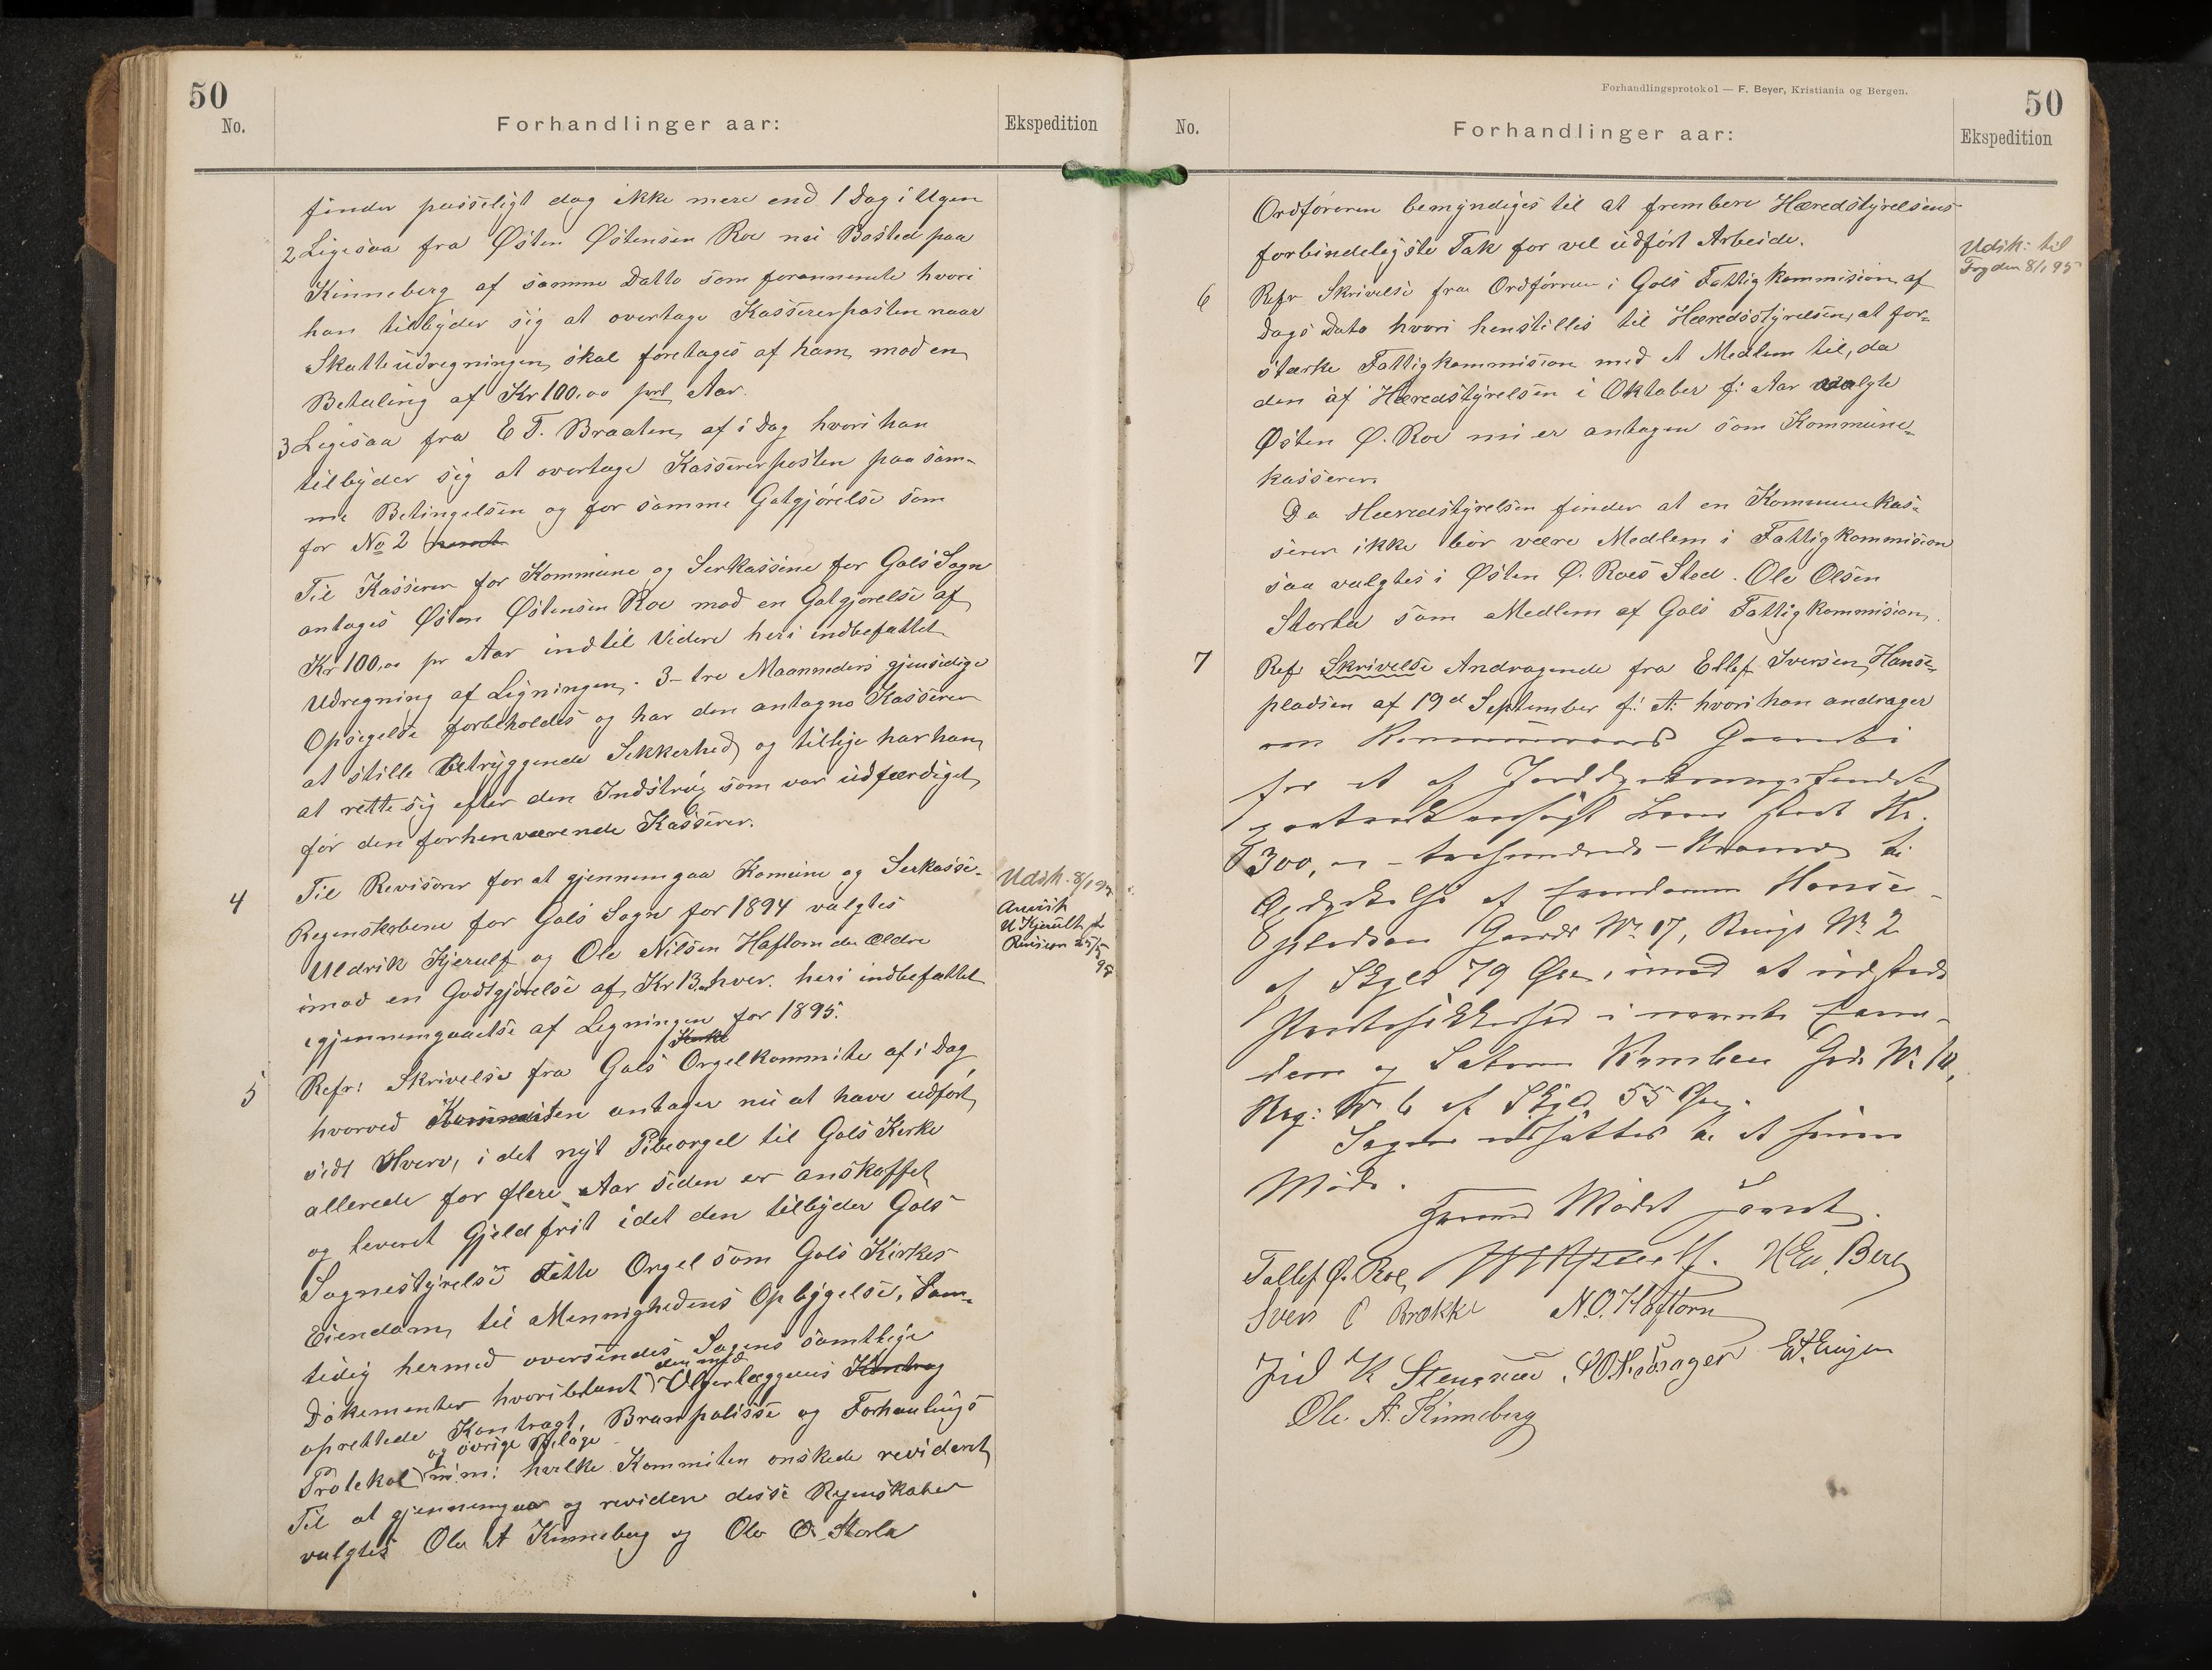 50
No.
Forhandlinger aar:
Ekspedition
finder passeligt dog ikke mere end 1 Dag i Ugen
2 Ligesaa fra Østen Østensen Roe nu Bosted paa
Kinneberg af samme Datto som forannevnte hvori
han tilbyder sig at overtage Kassererposten naar
Skatteudregningen skal foretages af ham mod en
Betaling af Kr 100,00 prd Aar.
3 Ligesaa fra E T. Braaten af i Dag hvori han
tilbyder sig at overtage Kassererposten paa sam-
me Betingelsen og for samme Gotgjørelse som
for No 2
Til Kasserer for Kommune og Serkassene for Gols Sogn
antages Østen Østensen Roe mod en Gotgjørelse af
Kr 100,00 pr Aar indtil Videre heri indbefattet
Udregning af Ligningen. 3- tre Maanneders gjensidige
Opsigelse forbeholdes og har den antagne Kasserer
at stille Betryggende Sikkerhed og tillige har han
at rette sig efter den Indstrug som var udfærdiget
for den forhenværende Kasserer.
4
Til Revisorer for at gjennemgaa Komune og Serkasse-
Regenskabene for Gols Sogn for 1894 valgtes
Uldrik Kjerulf og Ole Nilsen Haftorn den Ældre
imod en Godtgjørelse af Kr 13,00 hver. heri indbefattet
gjennemgaaelse af Ligningen for 1895.
Udsk. 8/1 95
Anvist
U Kjerulf for
Revision 25/5
95
5
Kirke
Refr: Skrivelse fra Gols Orgelkommite af i Dag
hvorved Kommiten antager nu at have udført
sidt Hverv, i det nyt Pibeorgel til Gols Kirke
allerede for flere Aar siden er anskaffet
og leveret Gjeldfrit idet den tilbyder Gols
Sognestyrelse dette Orgel som Gols Kirkes
Eiendom til Mennighedens Opbygelse. Sam-
tidig hermed oversendes Sagens samtlige
den med
Dokementer hvoriblant Olgerlæggeens Kontrag
oprettede Kontragt, Branpolisse og Forhanlings
og øvrige Bilage
Protekol m:m: hvilke Kommiten ønskede revideret
Til at gjennemgaa og revidere disse Regnskaber
valgtes Ole A Kinneberg og Ole O. Storla
Forhandlingsprotokol — F. Beyer, Kristiania og Bergen.
50
No.
Forhandlinger aar:
Ekspedition
Ordføreren bemyndiges til at frembere Heredstyrelsens
forbindeligste Tak for vel udført Arbeide.
Udsk: til
Fogden 8/1 95
6
Refr Skrivelse fra Ordføreren i Gols Fattigkommision af
Dags Dato hvori henstilles til Heredsstyrelsen, at for-
stærke Fattigkommision med et Medlem til, da
den af Heredstyrelsen i Oktober f: Aar valgte
Østen Ø. Roe nu er antagen som Kommune-
kasserer.
Da Heredstyrelsen finder at en Kommunekas-
serer ikke bør være Medlem i Fattigkommision
saa valgtes i Østen Ø. Roes Sted. Ole Olsen
Storla som Medlem af Gols Fattigkommision.
7
Ref Skrivelse Andragende fra Ellef Iversen Hanse-
pladsen af 19d September f: A: hvori han andrager
om Kommunens Garanti
for et af Jorddyrkningsfondet
Laan stort Kr.
300,00 - trehundrede - Kroner til
Opdyrkelse af Eiendommen Hanse-
pladsen Gaards No 17, Brugs No 2
af Skyld 79 Øre, imod at udstede
Pantesikkerhed i nævnte Eien-
dom og Grds No 10,
Brg: No 6 af Skyld 55 Øre.
Sagen udsættes til et senere
Møde.
Mødet hævet.
Tollef Ø. Roe U Kjerulf. H Berg
Sven O Brække N.O. Haftorn
K Stengrim E T Engen
Ole A. Kinneberg